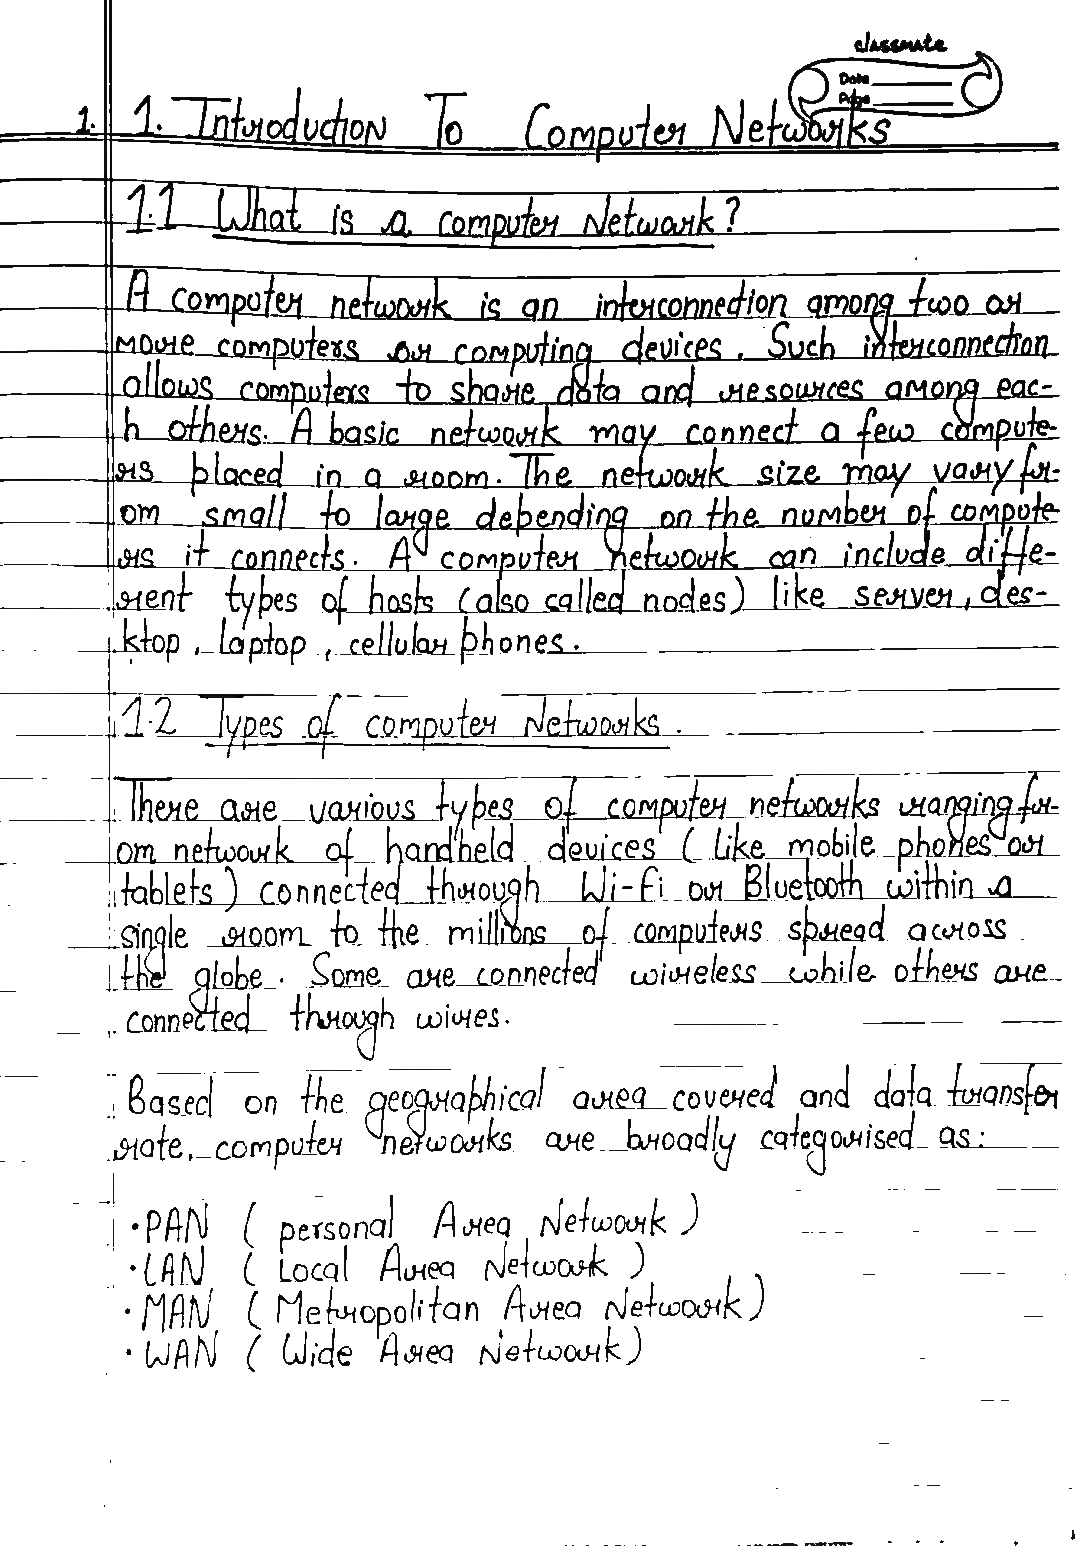 classmate
Date
Page
1. 1. Introduction To Computer Networks
1.1 What is a computer Network?
A computer network is an interconnection among two or
more computers or computing devices. Such interconnection
allows computers to share data and resources among eac-
h others. A basic network may connect a few compute-
rs placed in a room. The network size may vary fr-
om small to large depending on the number of compute-
rs it connects. A computer network can include diffe-
rent types of hosts (also called nodes) like server, des-
ktop, laptop, cellular phones.
1.2 Types of computer Networks.
There are various types of computer networks ranging fr-
om network of handheld devices (like mobile phones or
tablets) connected through Wi-Fi or Bluetooth within a
single room to the millions of computers spread across
the globe. Some are connected wireless while others are
connected through wires.
Based on the geographical area covered and data transfer
rate, computer networks are broadly categorised as:
• PAN (personal Area Network)
• LAN (Local Area Network)
• MAN (Metropolitan Area Network)
• WAN (Wide Area Network)